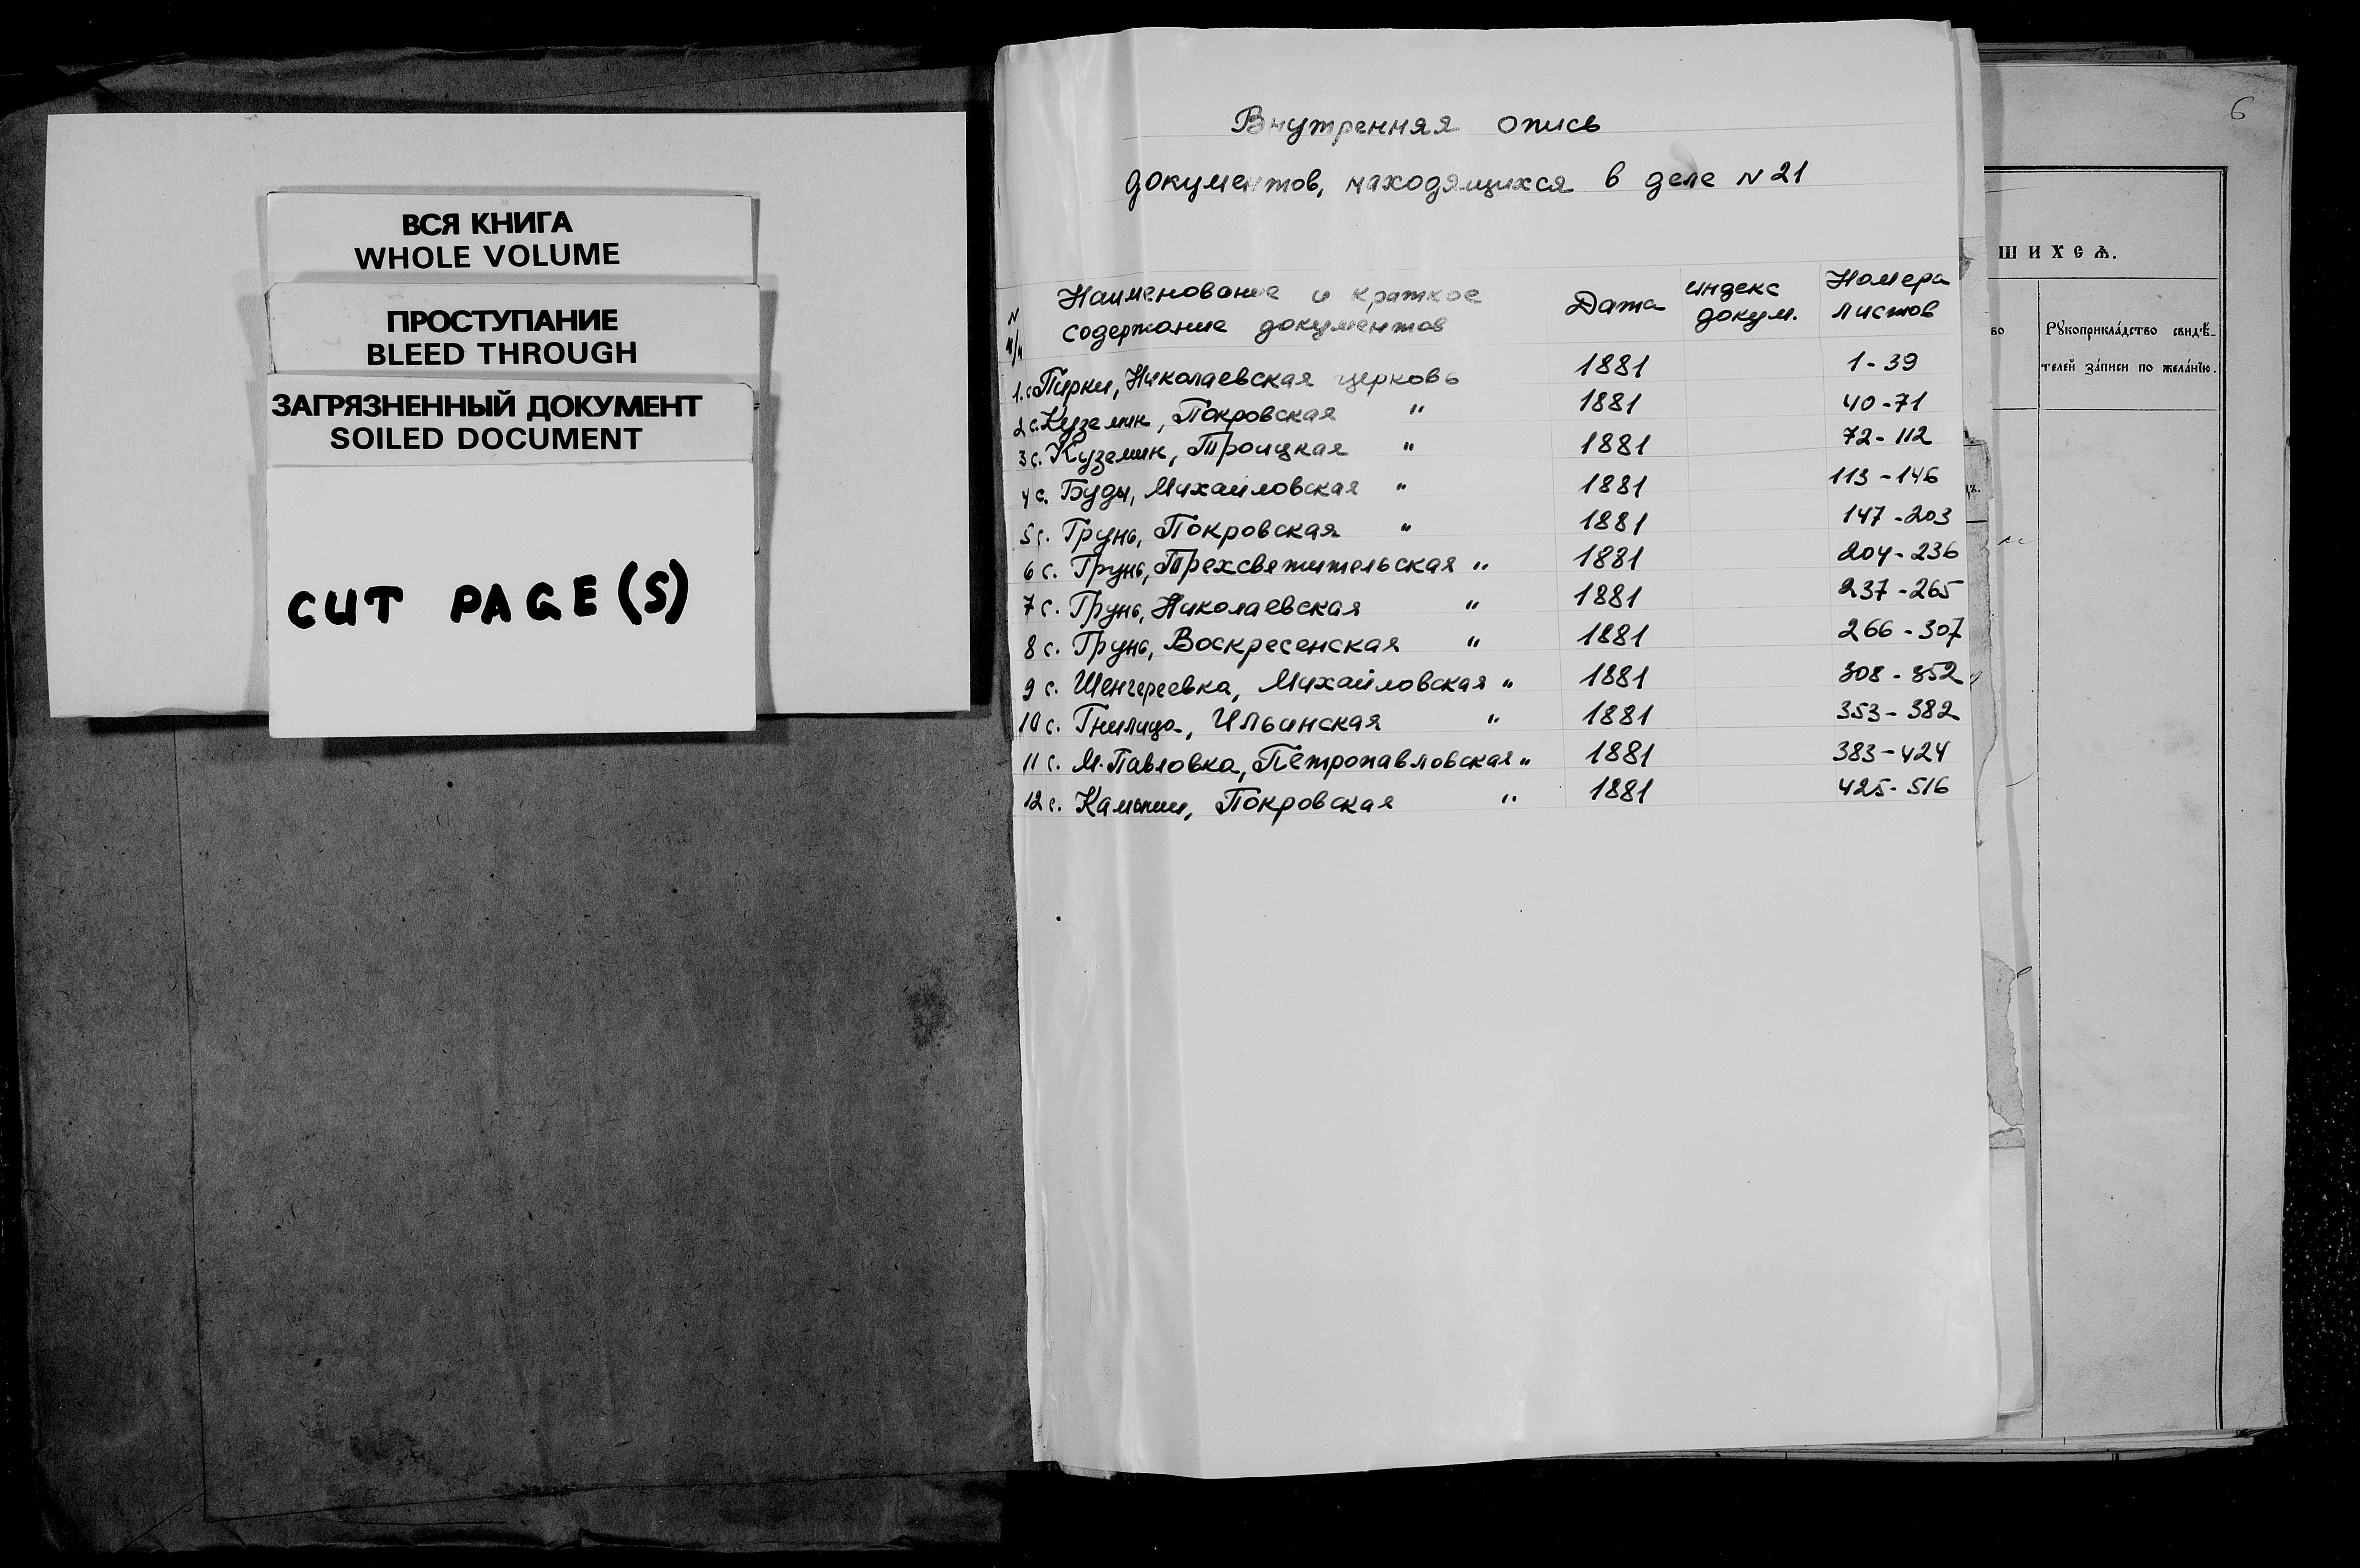 ВСЯ КНИГА
WHOLE VOLUME
ПРОСТУПАНИЕ
BLEED THROUGH
ЗАГРЯЗНЕННЫЙ ДОКУМЕНТ
SOILED DOCUMENT
CUT PAGE(S)
Внутренняя опись
документов, находящихся в деле N 21
N п/п Наименование и краткое содержание документов Дата индекс докум. Номера листов
1. с. Пирки, Николаевская церковь 1881 1-39
2 с. Куземин, Покровская " 1881 40-71
3 с. Куземин, Троицкая " 1881 72-112
4 с. Буды, Михайловская " 1881 113-146
5 с. Грунь, Покровская " 1881 147-203
6 с. Грунь, Трехсвятительская " 1881 204-236
7 с. Грунь, Николаевская " 1881 237-265
8 с. Грунь, Воскресенская " 1881 266-307
9 с. Шенгереевка, Михайловская " 1881 308-352
10 с. Гнилица, Ильинская " 1881 353-382
11 с. М. Павловка, Петропавловская " 1881 383-424
12 с. Камыши, Покровская " 1881 425-516
6
ШИХСѦ.
во
Рꙋкоприкла́дство свидѣ-
телей за́писи по жела́нїю.